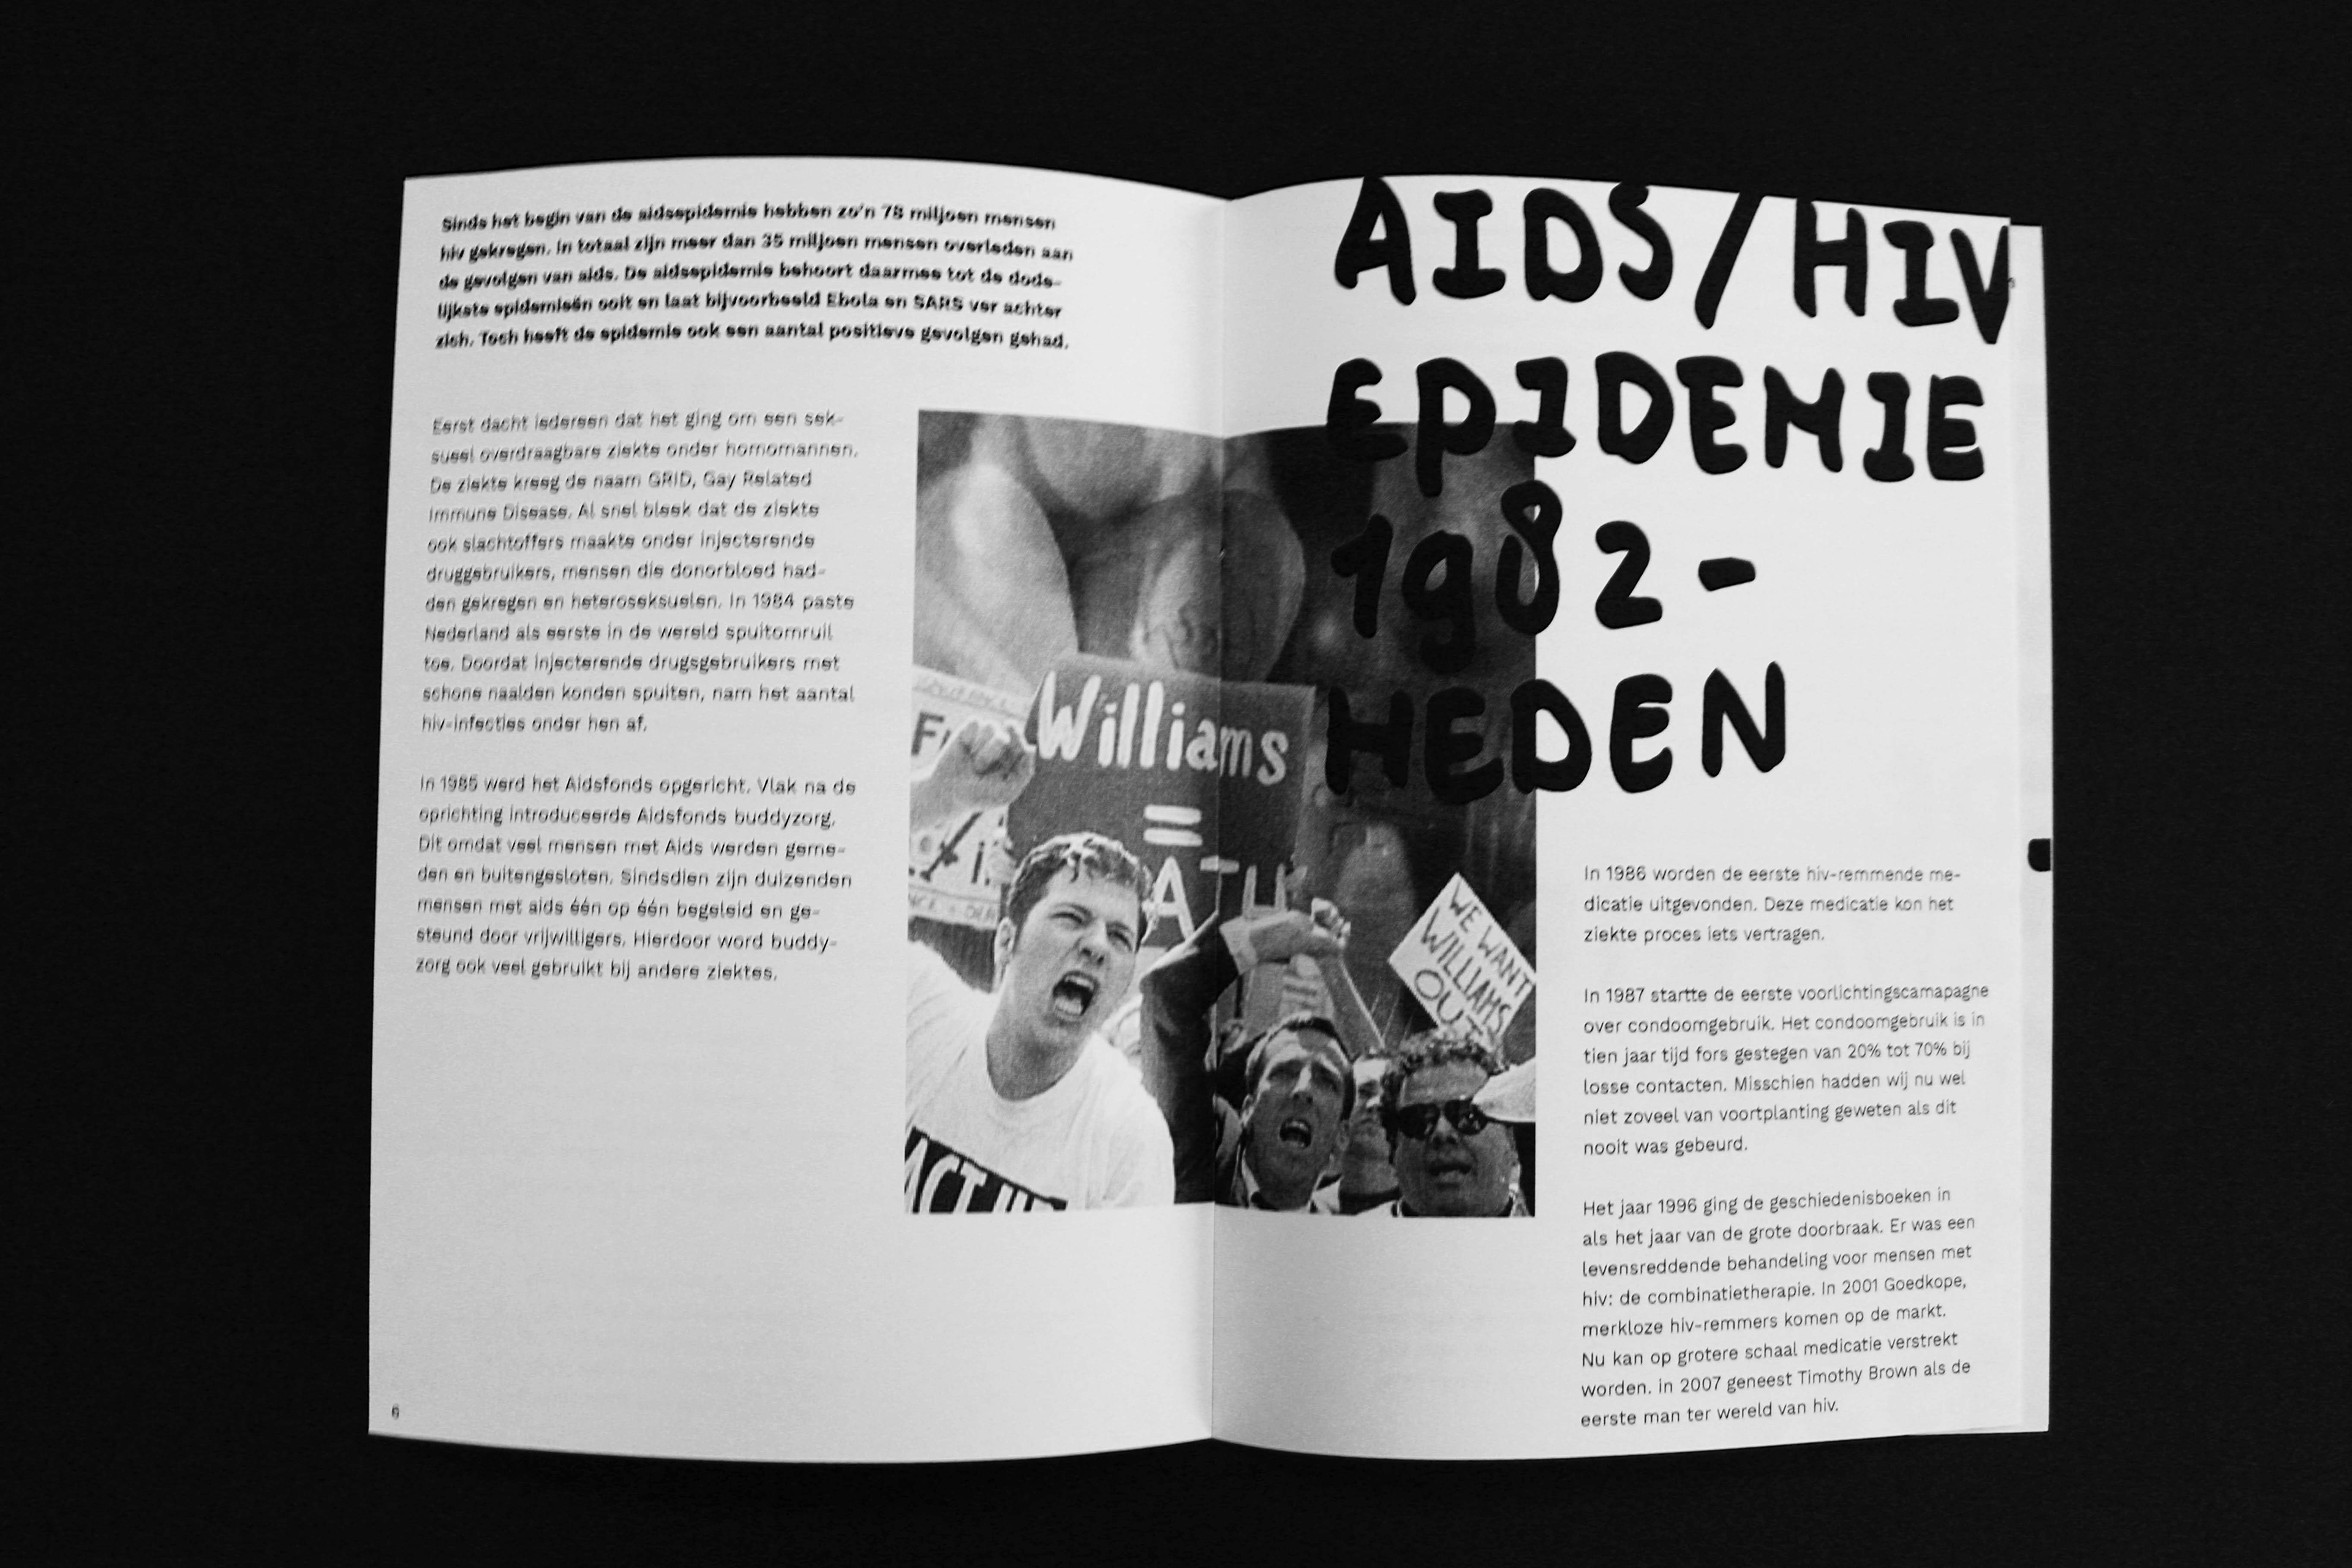 Sinds het begin van de aidsepidemie hebben zo'n 78 miljoen mensen
hiv gekregen. In totaal zijn meer dan 35 miljoen mensen overleden aan
de gevolgen van aids. De aidsepidemie behoort daarmee tot de dode-
lijkste epidemieën ooit en laat bijvoorbeeld Ebola en SARS ver achter
zich. Toch heeft de epidemie ook een aantal positieve gevolgen gehad.
Eerst dacht iedereen dat het ging om een sek-
sueel overdraagbare ziekte onder homomannen.
De ziekte kreeg de naam GRID, Gay Related
Immune Disease. Al snel bleek dat de ziekte
ook slachtoffers maakte onder injecterende
druggebruikers, mensen die donorbloed had-
den gekregen en heteroseksuelen. In 1984 paste
Nederland als eerste in de wereld spuitomruil
toe. Doordat injecterende drugsgebruikers met
schone naalden konden spuiten, nam het aantal
hiv-infecties onder hen af.
In 1985 werd het Aidsfonds opgericht. Vlak na de
oprichting introduceerde Aidsfonds buddyzorg.
Dit omdat veel mensen met Aids werden geme-
den en buitengesloten. Sindsdien zijn duizenden
mensen met aids één op één begeleid en ge-
steund door vrijwilligers. Hierdoor word buddy-
zorg ook veel gebruikt bij andere ziektes.
6
Williams
=
WE WANT
WILLIAMS
OUT
ACT
AIDS/HIV
EPIDEMIE
1982-
HEDEN
In 1986 worden de eerste hiv-remmende me-
dicatie uitgevonden. Deze medicatie kon het
ziekte proces iets vertragen.
In 1987 startte de eerste voorlichtingscamapagne
over condoomgebruik. Het condoomgebruik is in
tien jaar tijd fors gestegen van 20% tot 70% bij
losse contacten. Misschien hadden wij nu wel
niet zoveel van voortplanting geweten als dit
nooit was gebeurd.
Het jaar 1996 ging de geschiedenisboeken in
als het jaar van de grote doorbraak. Er was een
levensreddende behandeling voor mensen met
hiv: de combinatietherapie. In 2001 Goedkope,
merkloze hiv-remmers komen op de markt.
Nu kan op grotere schaal medicatie verstrekt
worden. in 2007 geneest Timothy Brown als de
eerste man ter wereld van hiv.